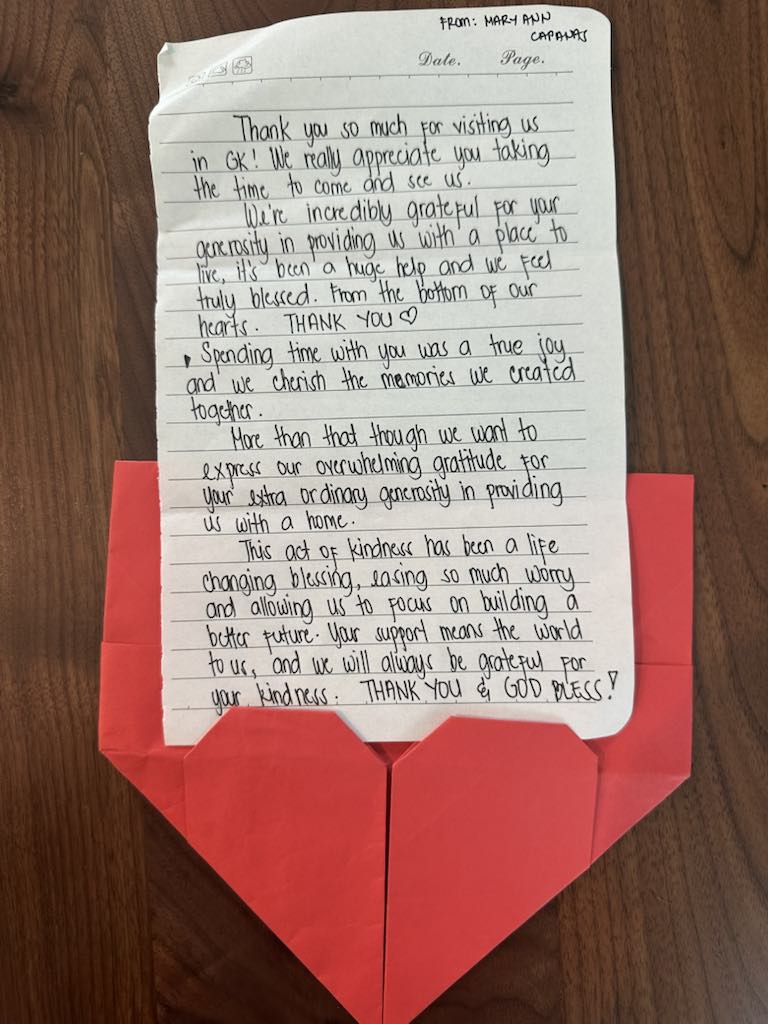 From: MARY ANN
CAPANAS
Date. Page.
Thank you so much for visiting us
in GK! We really appreciate you taking
the time to come and see us.
We're incredibly grateful for your
generosity in providing us with a place to
live, it's been a huge help and we feel
truly blessed. From the bottom of our
hearts. THANK YOU ♡
Spending time with you was a true joy
and we cherish the memories we created
together.
More than that though we want to
express our overwhelming gratitude for
your extra ordinary generosity in providing
us with a home.
This act of kindness has been a life
changing blessing, easing so much worry
and allowing us to focus on building a
better future. Your support means the world
to us, and we will always be grateful for
your kindness. THANK YOU & GOD BLESS!